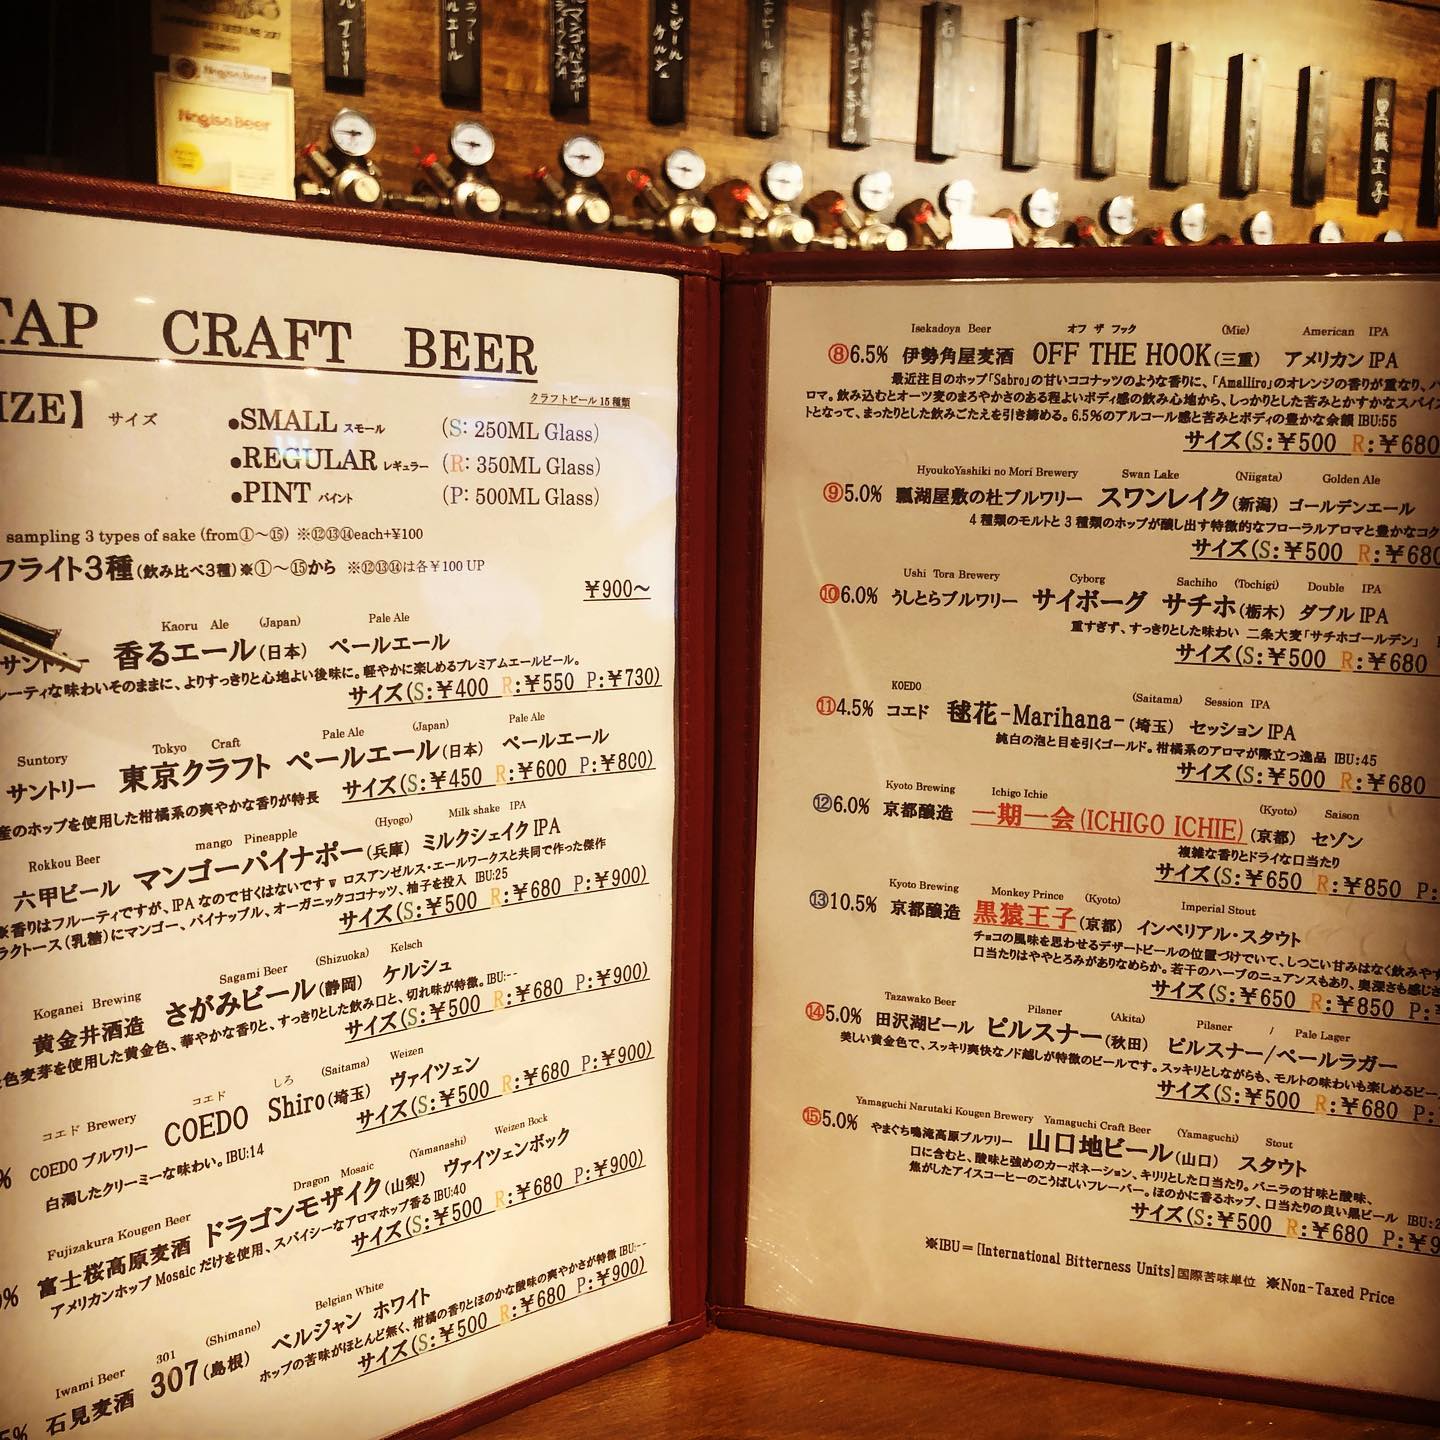 Nagisa Beer
Nagisa Beer
黒猿王子
TAP CRAFT BEER
クラフトビール15種類
IZE】サイズ
●SMALL スモール (S: 250ML Glass)
●REGULAR レギュラー (R: 350ML Glass)
●PINT パイント (P: 500ML Glass)
sampling 3 types of sake (from①～⑮) ※⑫⑬⑭each+¥100
フライト3種(飲み比べ3種)※①～⑮から ※⑫⑬⑭は各¥100 UP
¥900～
Kaoru Ale (Japan) Pale Ale
サントリー 香るエール(日本) ペールエール
ルーティな味わいそのままに、よりすっきりと心地よい後味に。軽やかに楽しめるプレミアムエールビール。
サイズ(S:¥400 R:¥550 P:¥730)
Suntory Tokyo Craft Pale Ale (Japan) Pale Ale
サントリー 東京クラフト ペールエール(日本) ペールエール
産のホップを使用した柑橘系の爽やかな香りが特長
サイズ(S:¥450 R:¥600 P:¥800)
Rokkou Beer mango Pineapple (Hyogo) Milk shake IPA
六甲ビール マンゴーパイナポー(兵庫) ミルクシェイクIPA
香りはフルーティですが、IPAなので甘くはないですw ロスアンゼルス・エールワークスと共同で作った傑作
ラクトース(乳糖)にマンゴー、パイナップル、オーガニックココナッツ、柚子を投入 IBU:25
サイズ(S:¥500 R:¥680 P:¥900)
Koganei Brewing Sagami Beer (Shizuoka) Kelsch
黄金井酒造 さがみビール(静岡) ケルシュ
色麦芽を使用した黄金色、華やかな香りと、すっきりとした飲み口と、切れ味が特徴。IBU:--
サイズ(S:¥500 R:¥680 P:¥900)
コエド Brewery コエド しろ (Saitama) Weizen
% COEDOブルワリー COEDO Shiro(埼玉) ヴァイツェン
白濁したクリーミーな味わい。IBU:14
サイズ(S:¥500 R:¥680 P:¥900)
Fujizakura Kougen Beer Dragon Mosaic (Yamanashi) Weizen Bock
0% 富士桜高原麦酒 ドラゴンモザイク(山梨) ヴァイツェンボック
アメリカンホップMosaicだけを使用、スパイシーなアロマホップ香る IBU:40
サイズ(S:¥500 R:¥680 P:¥900)
Iwami Beer 301 (Shimane) Belgian White
5% 石見麦酒 307(島根) ベルジャン ホワイト
ホップの苦味がほとんど無く、柑橘の香りとほのかな酸味の爽やかさが特徴 IBU:--
サイズ(S:¥500 R:¥680 P:¥900)
Isekadoya Beer オフ ザ フック (Mie) American IPA
⑧6.5% 伊勢角屋麦酒 OFF THE HOOK(三重) アメリカンIPA
最近注目のホップ「Sabro」の甘いココナッツのような香りに、「Amalliro」のオレンジの香りが重なり、
ロマ。飲み込むとオーツ麦のまろやかさのある程よいボディ感の飲み心地から、しっかりとした苦みとかすかなスパイス
トとなって、まったりとした飲みごたえを引き締める。6.5%のアルコール感と苦みとボディの豊かな余韻 IBU:55
サイズ(S:¥500 R:¥680
HyoukoYashiki no Mori Brewery Swan Lake (Niigata) Golden Ale
⑨5.0% 瓢湖屋敷の杜ブルワリー スワンレイク(新潟) ゴールデンエール
4種類のモルトと3種類のホップが醸し出す特徴的なフローラルアロマと豊かなコク
サイズ(S:¥500 R:¥680
Ushi Tora Brewery Cyborg Sachiho (Tochigi) Double IPA
⑩6.0% うしとらブルワリー サイボーグ サチホ(栃木) ダブルIPA
重すぎず、すっきりとした味わい 二条大麦「サチホゴールデン」
サイズ(S:¥500 R:¥680
KOEDO (Saitama) Session IPA
⑪4.5% コエド 毬花-Marihana-(埼玉) セッションIPA
純白の泡と目を引くゴールド。柑橘系のアロマが際立つ逸品 IBU:45
サイズ(S:¥500 R:¥680
Kyoto Brewing Ichigo Ichie (Kyoto) Saison
⑫6.0% 京都醸造 一期一会(ICHIGO ICHIE)(京都) セゾン
複雑な香りとドライな口当たり
サイズ(S:¥650 R:¥850 P:
Kyoto Brewing Monkey Prince (Kyoto) Imperial Stout
⑬10.5% 京都醸造 黒猿王子(京都) インペリアル・スタウト
チョコの風味を思わせるデザートビールの位置づけでいて、しつこい甘みはなく飲みやす
口当たりはややとろみがありなめらか。若干のハーブのニュアンスもあり、奥深さも感じさ
サイズ(S:¥650 R:¥850 P:
Tazawako Beer Pilsner (Akita) Pilsner / Pale Lager
⑭5.0% 田沢湖ビール ピルスナー(秋田) ピルスナー/ペールラガー
美しい黄金色で、スッキリ爽快なノド越しが特徴のビールです。スッキリとしながらも、モルトの味わいも楽しめるビー
サイズ(S:¥500 R:¥680 P:
Yamaguchi Narutaki Kougen Brewery Yamaguchi Craft Beer (Yamaguchi) Stout
⑮5.0% やまぐち鳴滝高原ブルワリー 山口地ビール(山口) スタウト
口に含むと、酸味と強めのカーボネーション、キリリとした口当たり。バニラの甘味と酸味、
焦がしたアイスコーヒーのこうばしいフレーバー。ほのかに香るホップ、口当たりの良い黒ビール IBU:2
サイズ(S:¥500 R:¥680 P:¥9
※IBU=[International Bitterness Units]国際苦味単位 ※Non-Taxed Price